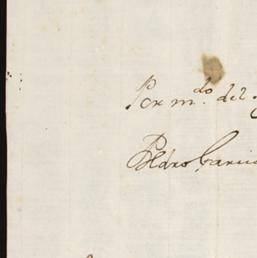 Por m.do del
Pedro Garci